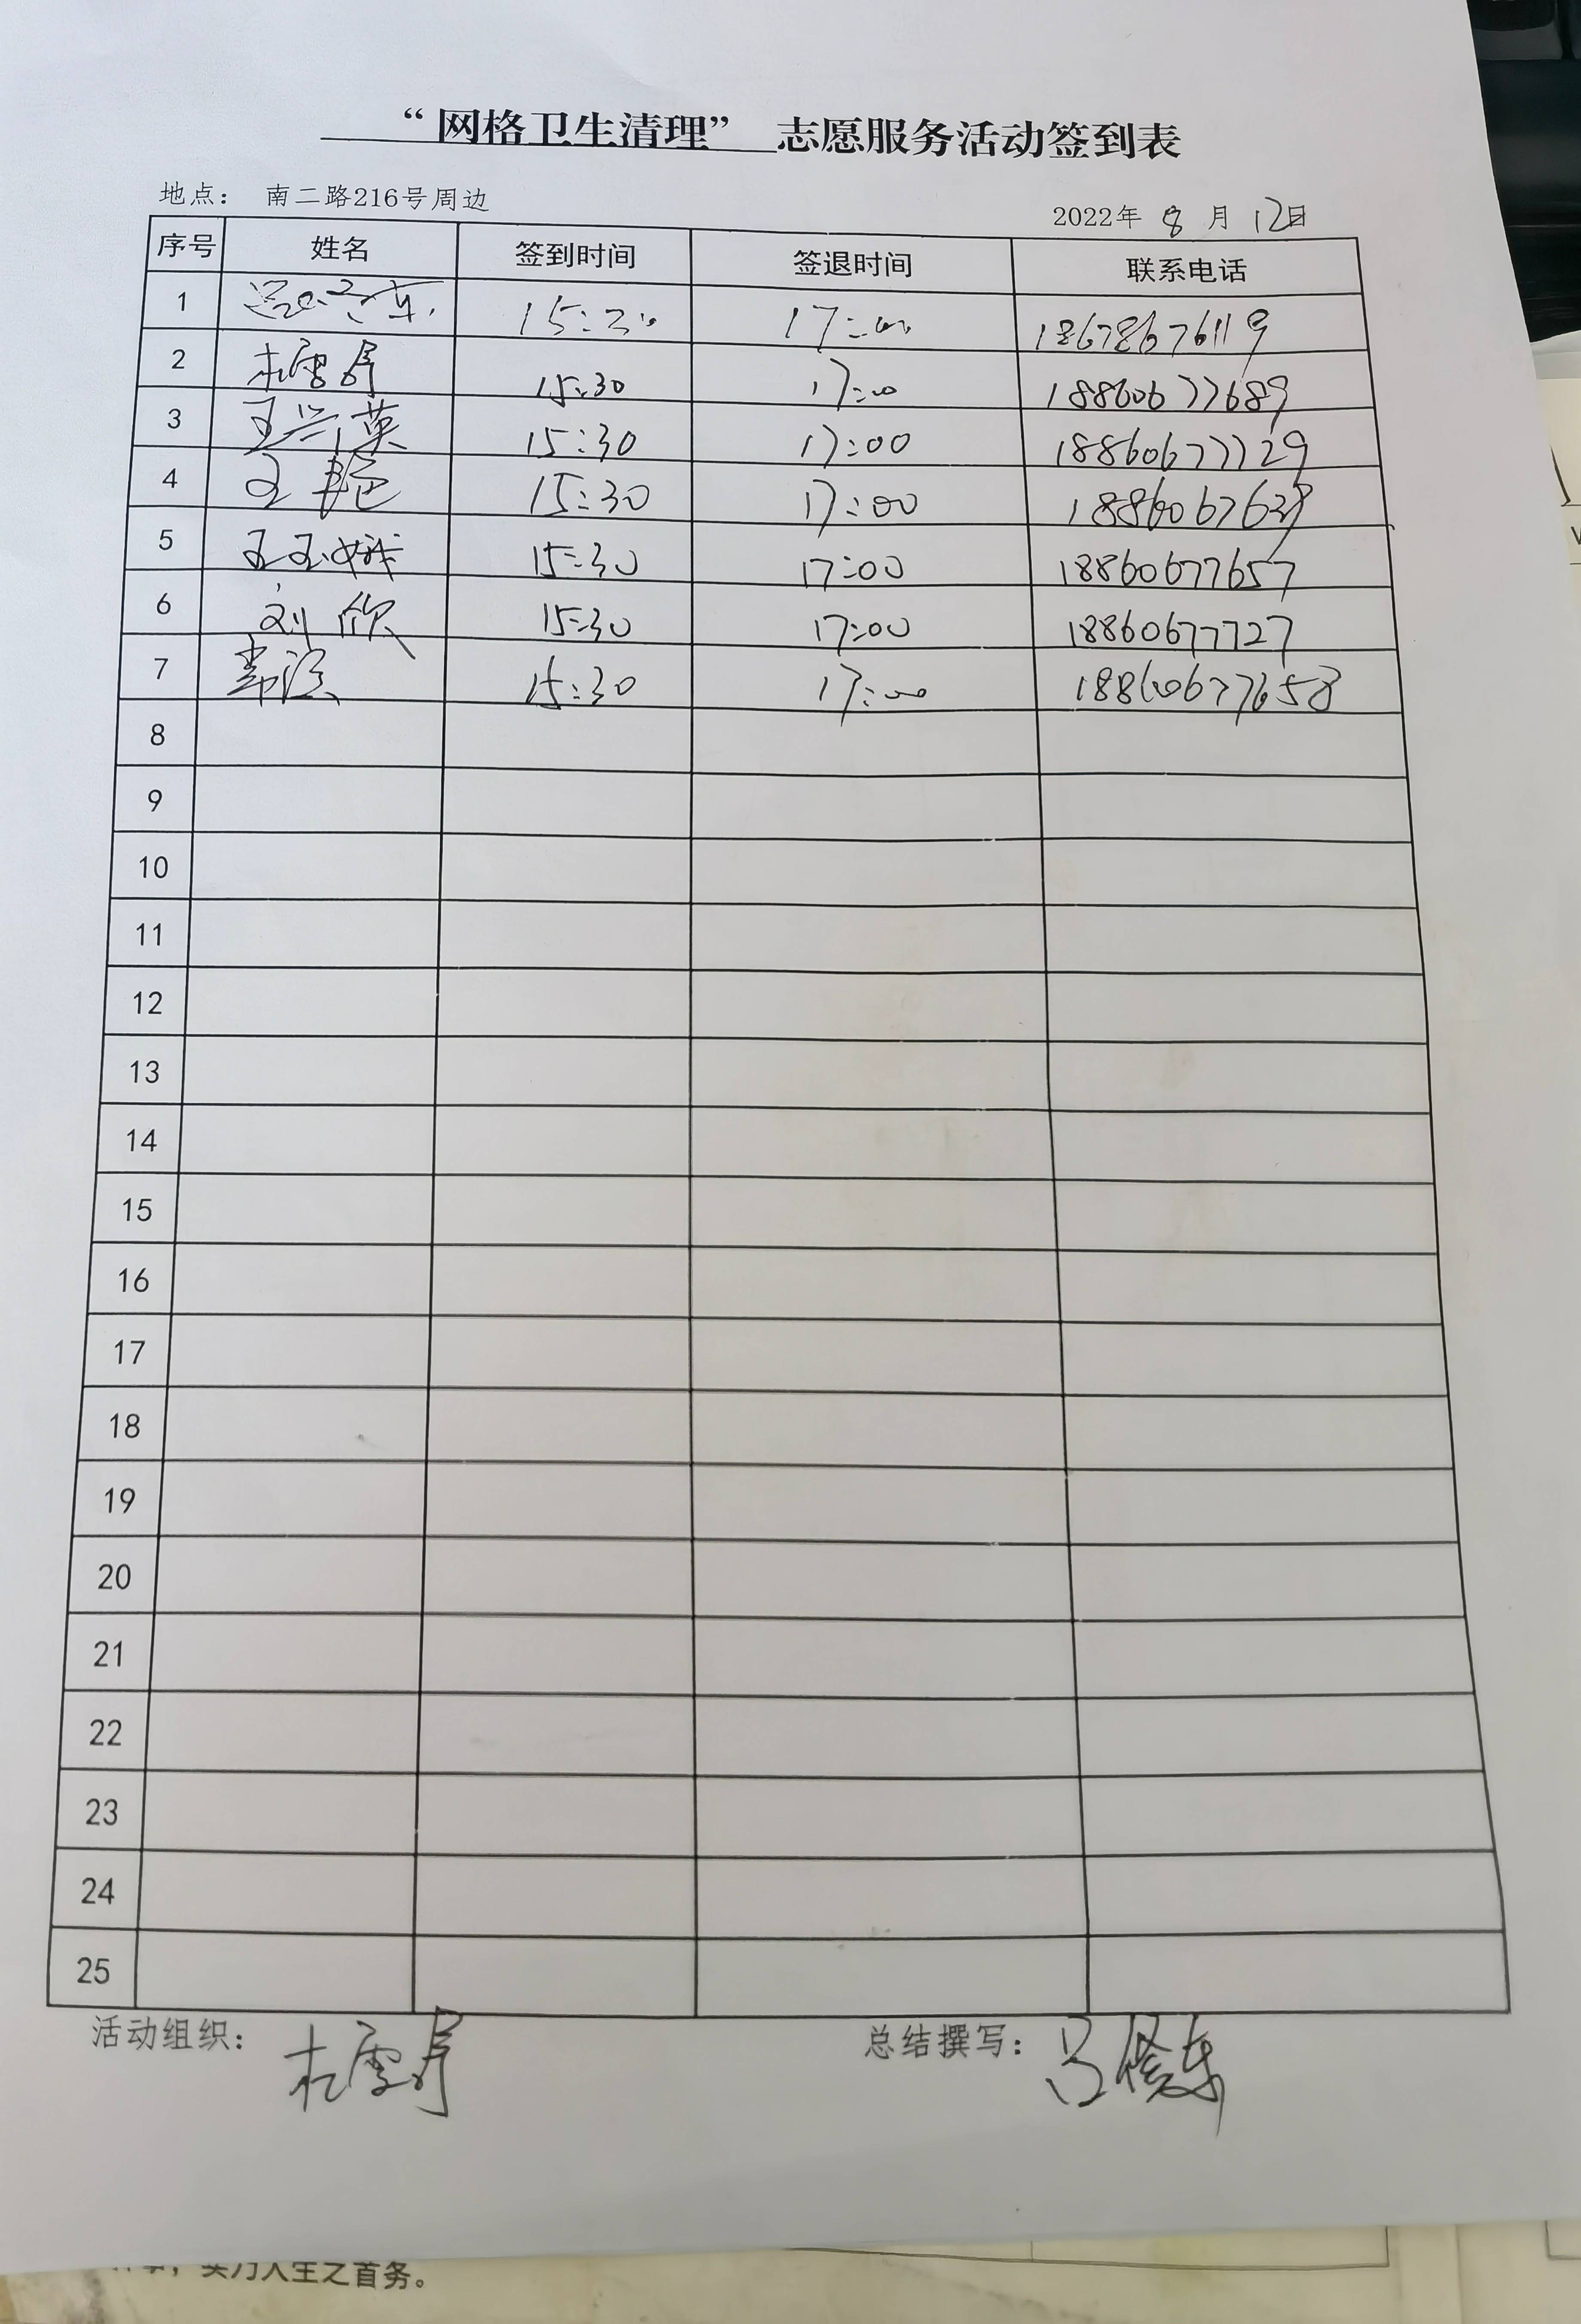 “网格卫生清理” 志愿服务活动签到表
地点: 南二路216号周边 2022年 8 月 12日
序号 姓名 签到时间 签退时间 联系电话
1 15:30 17:00 18678676119
2 杜雪芹 15:30 17:00 18860677689
3 王兴英 15:30 17:00 18860677729
4 王艳 15:30 17:00
5 王玉娥 15:30 17:00 18860677657
6 刘欣 15:30 17:00 18860677727
7 15:30 17:00 18860677658
8
9
10
11
12
13
14
15
16
17
18
19
20
21
22
23
24
25
活动组织: 杜雪芹 总结撰写: 吕俊东
人生之首务。